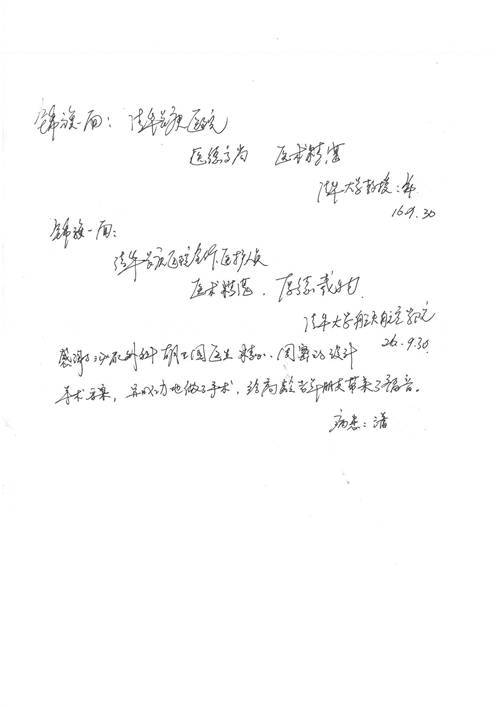 锦旗一面：清华长庚医院
医德高尚 医术精湛
清华大学教授：郑
16.9.30
锦旗一面：
清华长庚医院全体医护人员
医术精湛，厚德载物
清华大学航天航空学院
26.9.30
感谢泌尿外科胡卫国医生精心、周密的设计
手术方案，并以大力地做了手术，给高龄老年朋友带来了福音。
病患：潘